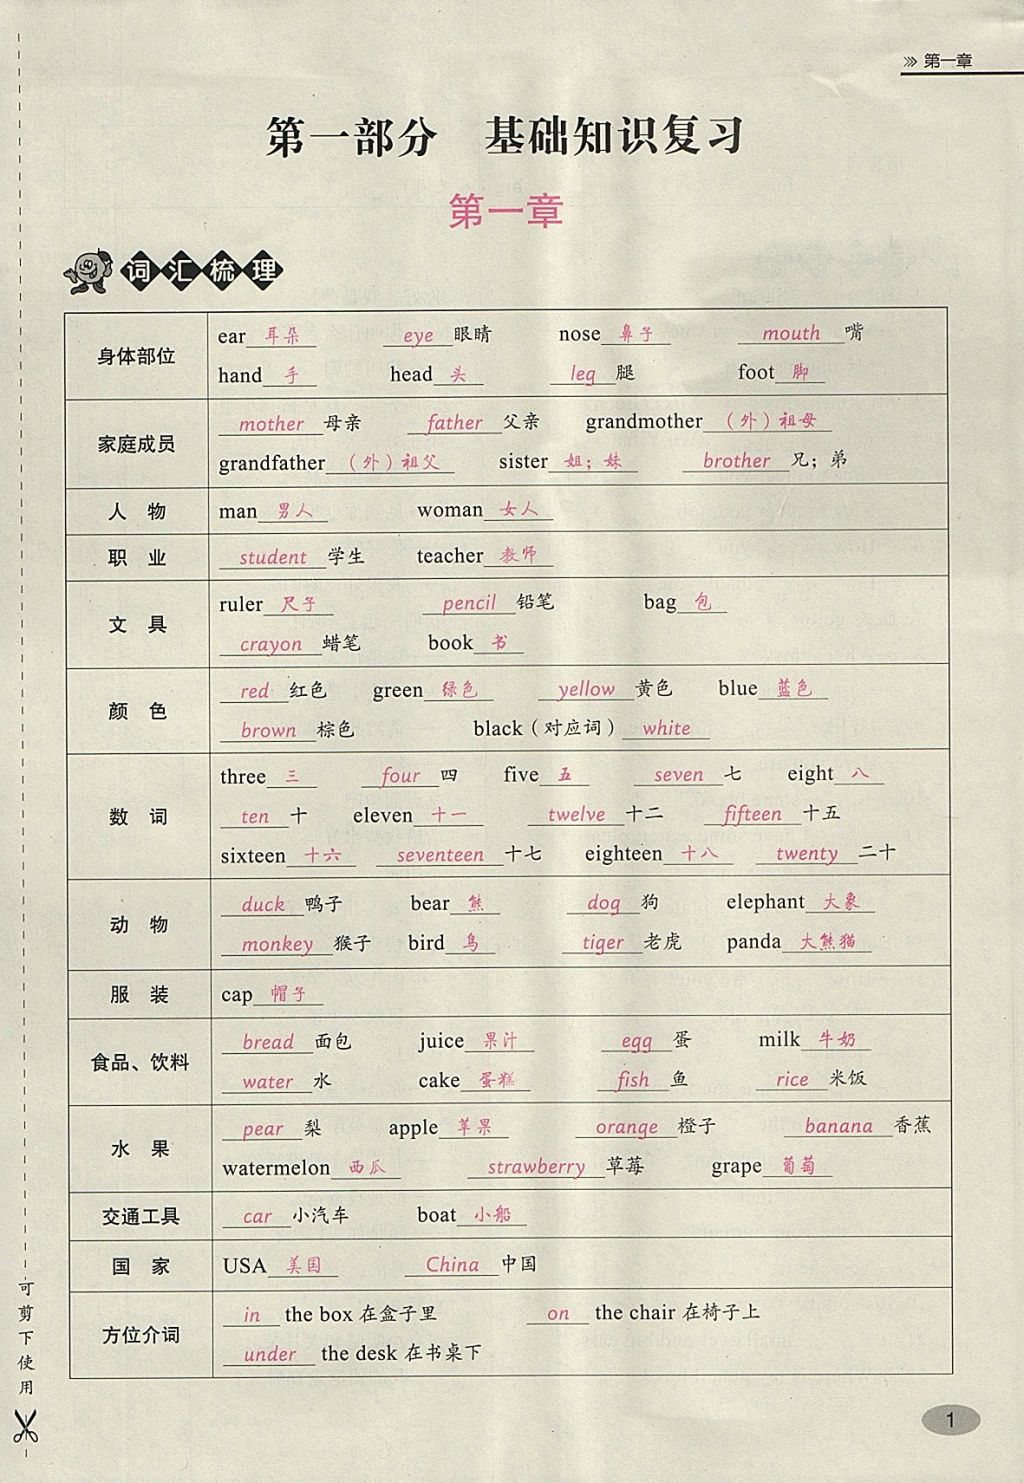 >>> 第一章
第一部分 基础知识复习
第一章
词汇梳理
身体部位
ear 耳朵 eye 眼睛 nose 鼻子 mouth 嘴
hand 手 head 头 leg 腿 foot 脚
家庭成员
mother 母亲 father 父亲 grandmother (外)祖母
grandfather (外)祖父 sister 姐；妹 brother 兄；弟
人 物
man 男人 woman 女人
职 业
student 学生 teacher 教师
文 具
ruler 尺子 pencil 铅笔 bag 包
crayon 蜡笔 book 书
颜 色
red 红色 green 绿色 yellow 黄色 blue 蓝色
brown 棕色 black（对应词） white
数 词
three 三 four 四 five 五 seven 七 eight 八
ten 十 eleven 十一 twelve 十二 fifteen 十五
sixteen 十六 seventeen 十七 eighteen 十八 twenty 二十
动 物
duck 鸭子 bear 熊 dog 狗 elephant 大象
monkey 猴子 bird 鸟 tiger 老虎 panda 大熊猫
服 装
cap 帽子
食品、饮料
bread 面包 juice 果汁 egg 蛋 milk 牛奶
water 水 cake 蛋糕 fish 鱼 rice 米饭
水 果
pear 梨 apple 苹果 orange 橙子 banana 香蕉
watermelon 西瓜 strawberry 草莓 grape 葡萄
交通工具
car 小汽车 boat 小船
国 家
USA 美国 China 中国
方位介词
in the box 在盒子里 on the chair 在椅子上
under the desk 在书桌下
可剪下使用
1